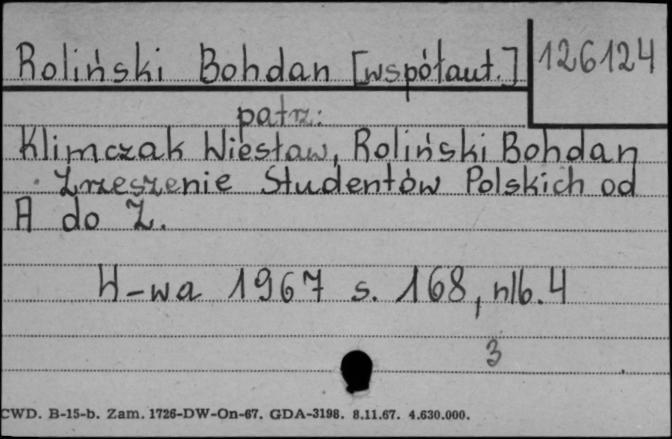 Roliński Bohdan [współaut.] 126124
patrz:
Klimczak Wiesław, Roliński Bohdan
Zrzeszenie Studentów Polskich od
A do Z.
W-wa 1967 s. 168, nlb. 4
3
CWD. B-15-b. Zam. 1726-DW-On-67. GDA-3198. 8.11.67. 4.630.000.